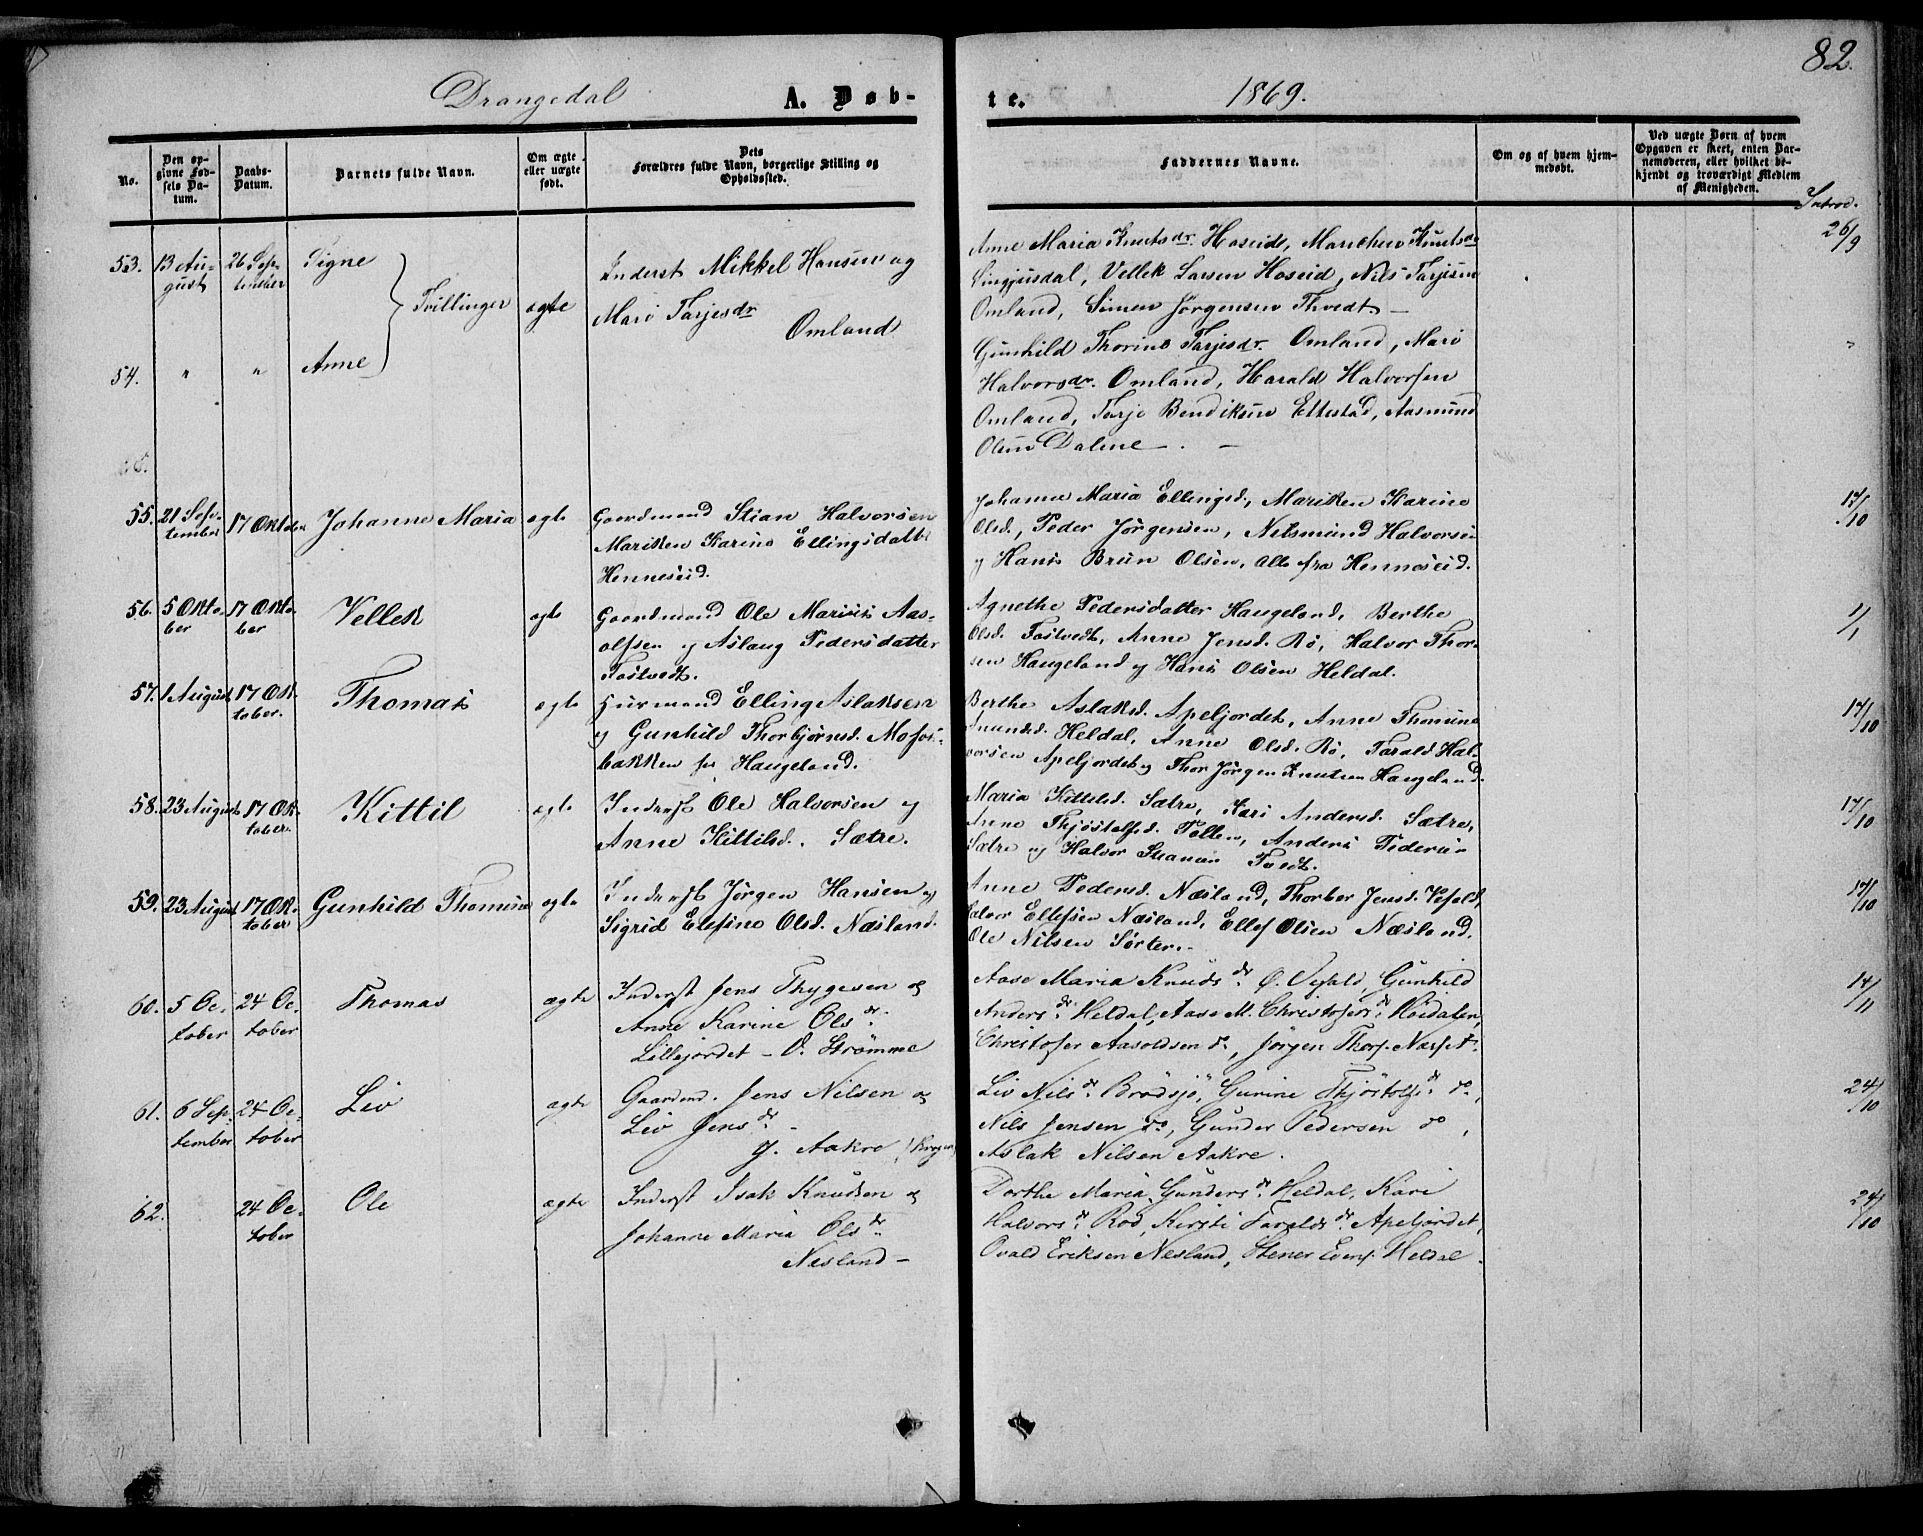 82.
Drangedal A. Døb-
te. 1869.
No.
Den opgivne Fødsels Datum.
Daabs-Datum.
Barnets fulde Navn.
Om ægte eller uægte født.
Dets Forældres fulde Navn, borgerlige Stilling og Opholdssted.
Faddernes Navne.
Om og af hvem hjemmedøbt.
Ved uægte Børn af hvem Opgaven er skeet, enten Barnemoderen, eller hvilket bekjendt og troværdigt Medlem af Menigheden.
Introd.
53. 13 August 26 September Signe Tvillinger ægte
Inderst Mikkel Hansen og
Mari Tarjesdr
Omland
Anne Maria Knutsdr. Hoseid, Knutsdr
Vellek Larsen Hoseid, Nils Tarjesen
Omland, Simen Jørgensen Thvedt —
26/9
54. " " Anne
Gunhild Thorine Tarjesdr. Omland, Mari
Halvorsdr. Omland, Harald Halvorsen
Omland, Tarje Bendiksen Ettestad, Aasmund
Olsen Dalene —. —
"
55. 21 September 17 Oktober Johanne Maria ægte
Gaardmand Stian Halvorsen
Mariken Karine Ellingsdatter
Henneseid.
Johanne Maria Ellingsd., Mariken Karine
Olsd., Peder Jørgensen, Nilsmund Halvorsen
og Hans Brun Olsen, alle fra Henneseid.
17/10
56. 5 Oktober 17 Oktober Vellek ægte
Gaardmand Ole Marius Aas-
olfsen og Aslaug Pedersdatter
Tostvedt.
Agnethe Pedersdatter Haugeland, Berthe
Olsd. Tostvedt, Anne Jensd. Rø, Halvor Thor-
sen Haugeland og Hans Olsen Heldal.
1/1
57. 1 August 17 Oktober. Thomas ægte
Huusmand Elling Aslaksen
og Gunhild Thorbjørnsd. Moses-
bakken fr Haugeland.
Berthe Aslaksd. Apeljordet, Anne Thomine
Heldal, Anne Olsd. Rø, Tarald Hal-
vorsen Apeljordet og Thor Jørgen Knutsen Haugeland.
17/10
58. 23 August 17 Oktober. Kittil ægte
Inderst Ole Halvorsen og
Anne Kittilsd. Sætre.
Maria Kittilsd. Sætre, Kari Andersd. Sætre,
Anne Thjøstolfsd. Anders Pedersen
Sætre og Halvor
17/10
59. 23 August 17 Oktober Gunhild Thomine ægte
Inderst Jørgen Hansen og
Sigrid Elefine Olsd. Næsland.
Anne Pedersd. Næsland, Thorber Jensd. Vefald,
Halvor Ellefsen Næsland, Ellef Olsen Næsland.
Ole Nilsen Sørter.-
17/10
60. 5 October 24 October Thomas ægte
Inderst Jens Thygesen og
Anne Karine Olsdr.
Lillejordet – V. Strømme
Aase Maria Knudsdr. Ø. Vefald, Gunhild
Andersdr. Heldal, Aase M. Christofersdr. Heidalen,
Christofer Aasoldsen do, Jørgen Thors.
14/11
61. 6 September 24 October Liv ægte
Gaardmd. Jens Nilsen og
Liv Jensdr –
y. Aakre
Liv Nilsdr Brødsjø, Gunine Thjøstolfsdr do,
Nils Jensen do, Gunder Pedersen do,
Aslak Nilsen Aakre.
24/10
62. 24 October Ole ægte
Inderst Isak Knudsen og
Johanne Maria Olsdr
Næsland –
Dorthe Maria Gundersdr. Heldal, Kari
Halvorsdr. Rød, Kirsti Taraldsdr. Apeljordet,
Ovald Eriksen Næsland, Stener Evens. Heldal.
24/10